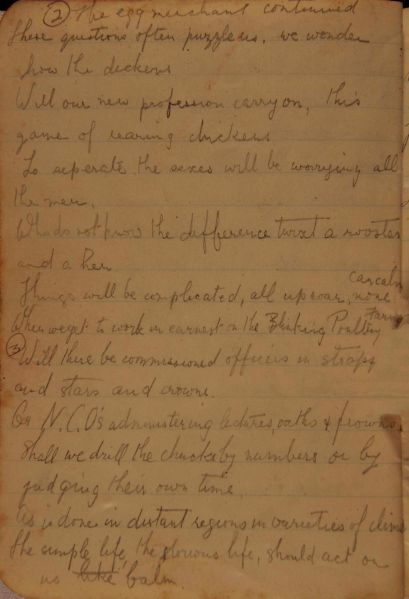 (2) The egg merchant continued
These questions often puzzle us, we wonder
how the dickens
Will our new profession carry on, this
game of rearing chickens
To seperate the sexes will be worrying all
the men,
Who do not know the difference twixt a rooster
and a hen
Things will be complicated, all uproar, none can calm
When we get to work in earnest on the Blinking Poultry Farm
(3) Will there be commissioned officers in straps
and stars and crowns.
Or N.C.O's administering lectures, oaths & frowns
Shall we drill the chicks by numbers or by
judging their own time
As is done in distant regions in varieties of clime
The simple life, the glorious life, should act on
us like balm